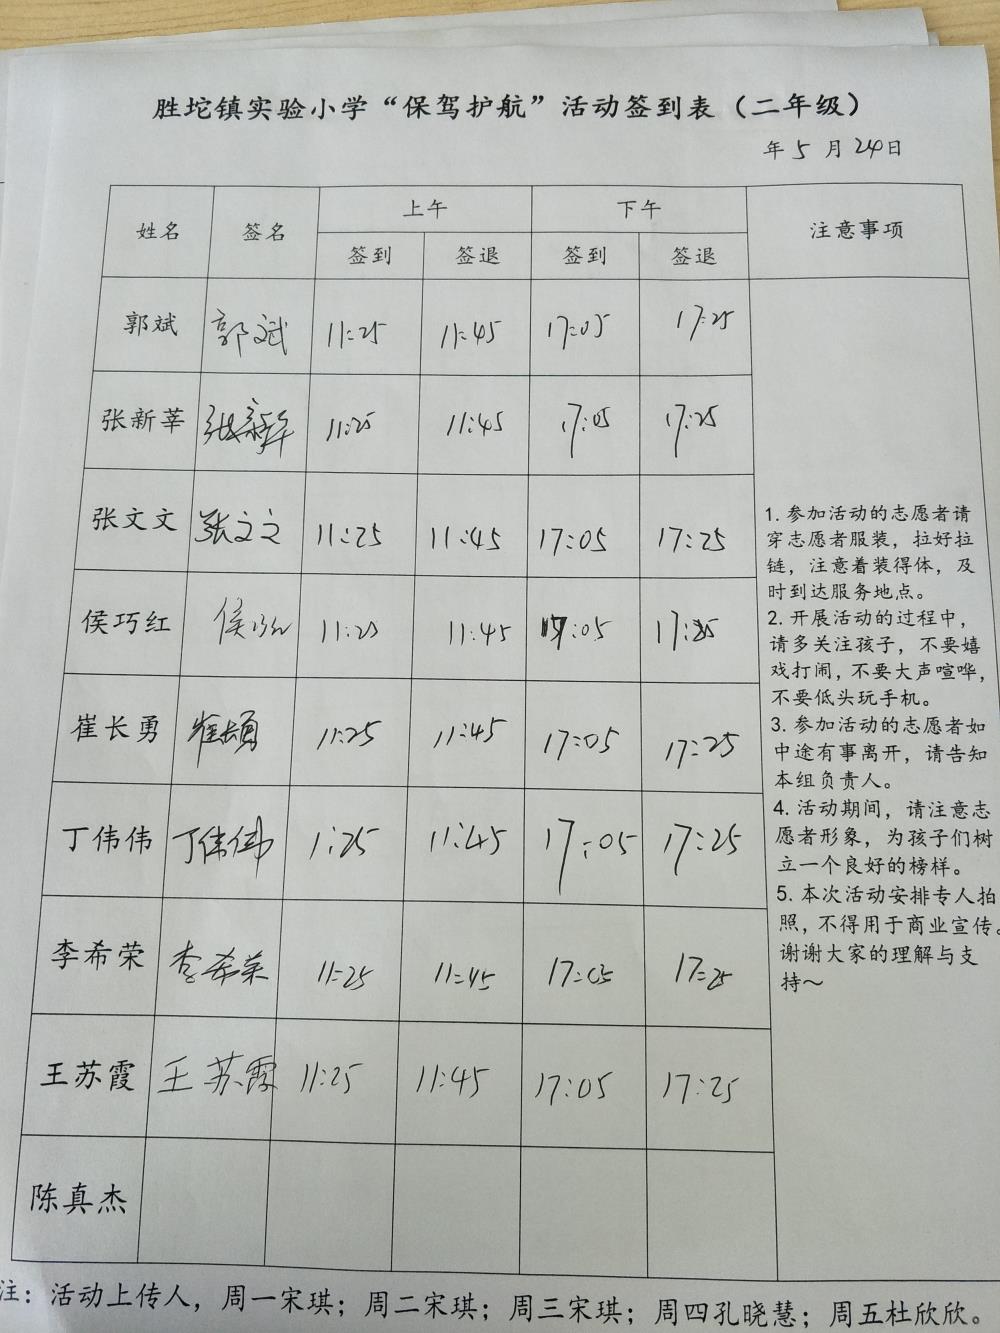 胜坨镇实验小学“保驾护航”活动签到表（二年级）
年 5 月 24 日
姓名 签名 上午 下午 注意事项
签到 签退 签到 签退
郭斌 郭斌 11:25 11:45 17:05 17:25
张新莘 张新莘 11:25 11:45 17:05 17:25
张文文 张文文 11:25 11:45 17:05 17:25
侯巧红 侯巧红 11:25 11:45 17:05 17:25
崔长勇 崔长勇 11:25 11:45 17:05 17:25
丁伟伟 丁伟伟 1:25 11:45 17:05 17:25
李希荣 李希荣 11:25 11:45 17:05 17:25
王苏霞 王苏霞 11:25 11:45 17:05 17:25
陈真杰
1. 参加活动的志愿者请
穿志愿者服装，拉好拉
链，注意着装得体，及
时到达服务地点。
2. 开展活动的过程中，
请多关注孩子，不要嬉
戏打闹，不要大声喧哗，
不要低头玩手机。
3. 参加活动的志愿者如
中途有事离开，请告知
本组负责人。
4. 活动期间，请注意志
愿者形象，为孩子们树
立一个良好的榜样。
5. 本次活动安排专人拍
照，不得用于商业宣传。
谢谢大家的理解与支
持～
注：活动上传人，周一宋琪；周二宋琪；周三宋琪；周四孔晓慧；周五杜欣欣。